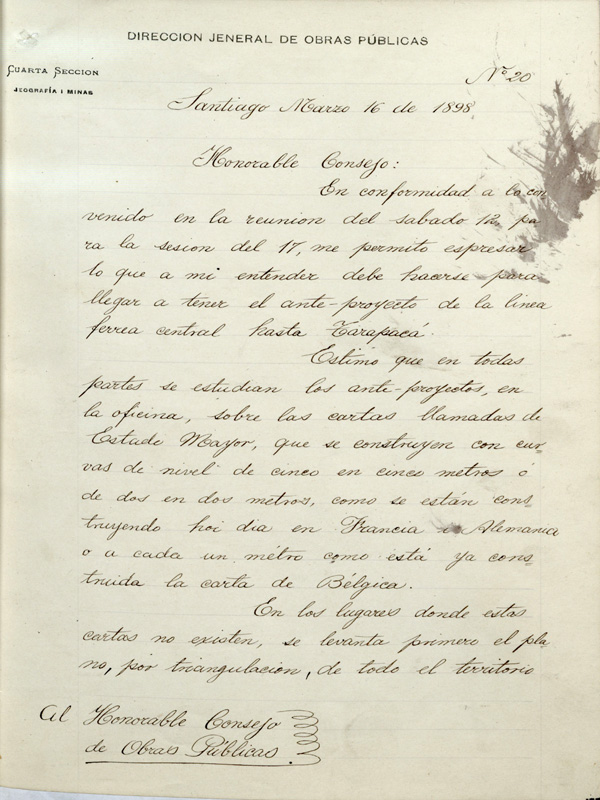 DIRECCION JENERAL DE OBRAS PÚBLICAS
CUARTA SECCION
JEOGRAFÍA I MINAS
Nº 20
Santiago Marzo 16 de 1898
Honorable Consejo:
En conformidad a lo con
venido en la reunion del sabado 12, pa
ra la sesion del 17, me permito espresar
lo que a mi entender debe hacerse para
llegar a tener el ante-proyecto de la linea
ferrea central hasta Tarapacá.
Estimo que en todas
partes se estudian los ante-proyectos, en
la oficina, sobre las cartas llamadas de
Estado Mayor, que se construyen con cur-
vas de nivel de cinco en cinco metros ó
de dos en dos metros, como se están cons-
truyendo hoi dia en Francia i Alemania
o a cada un métro como está ya cons-
truida la carta de Bélgica.
En los lugares donde estas
cartas no existen, se levanta primero el pla-
no, por triangulacion, de todo el territorio
Al Honorable Consejo
de Obras Públicas.